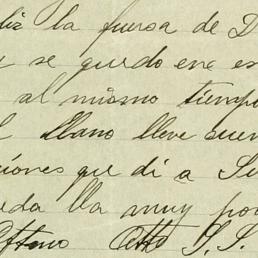 la fuersa de D
se quedo en es
al mismo tiempo
llano lleve
ciones que di a Su
eda lla muy po
Affmo Atto S. S.